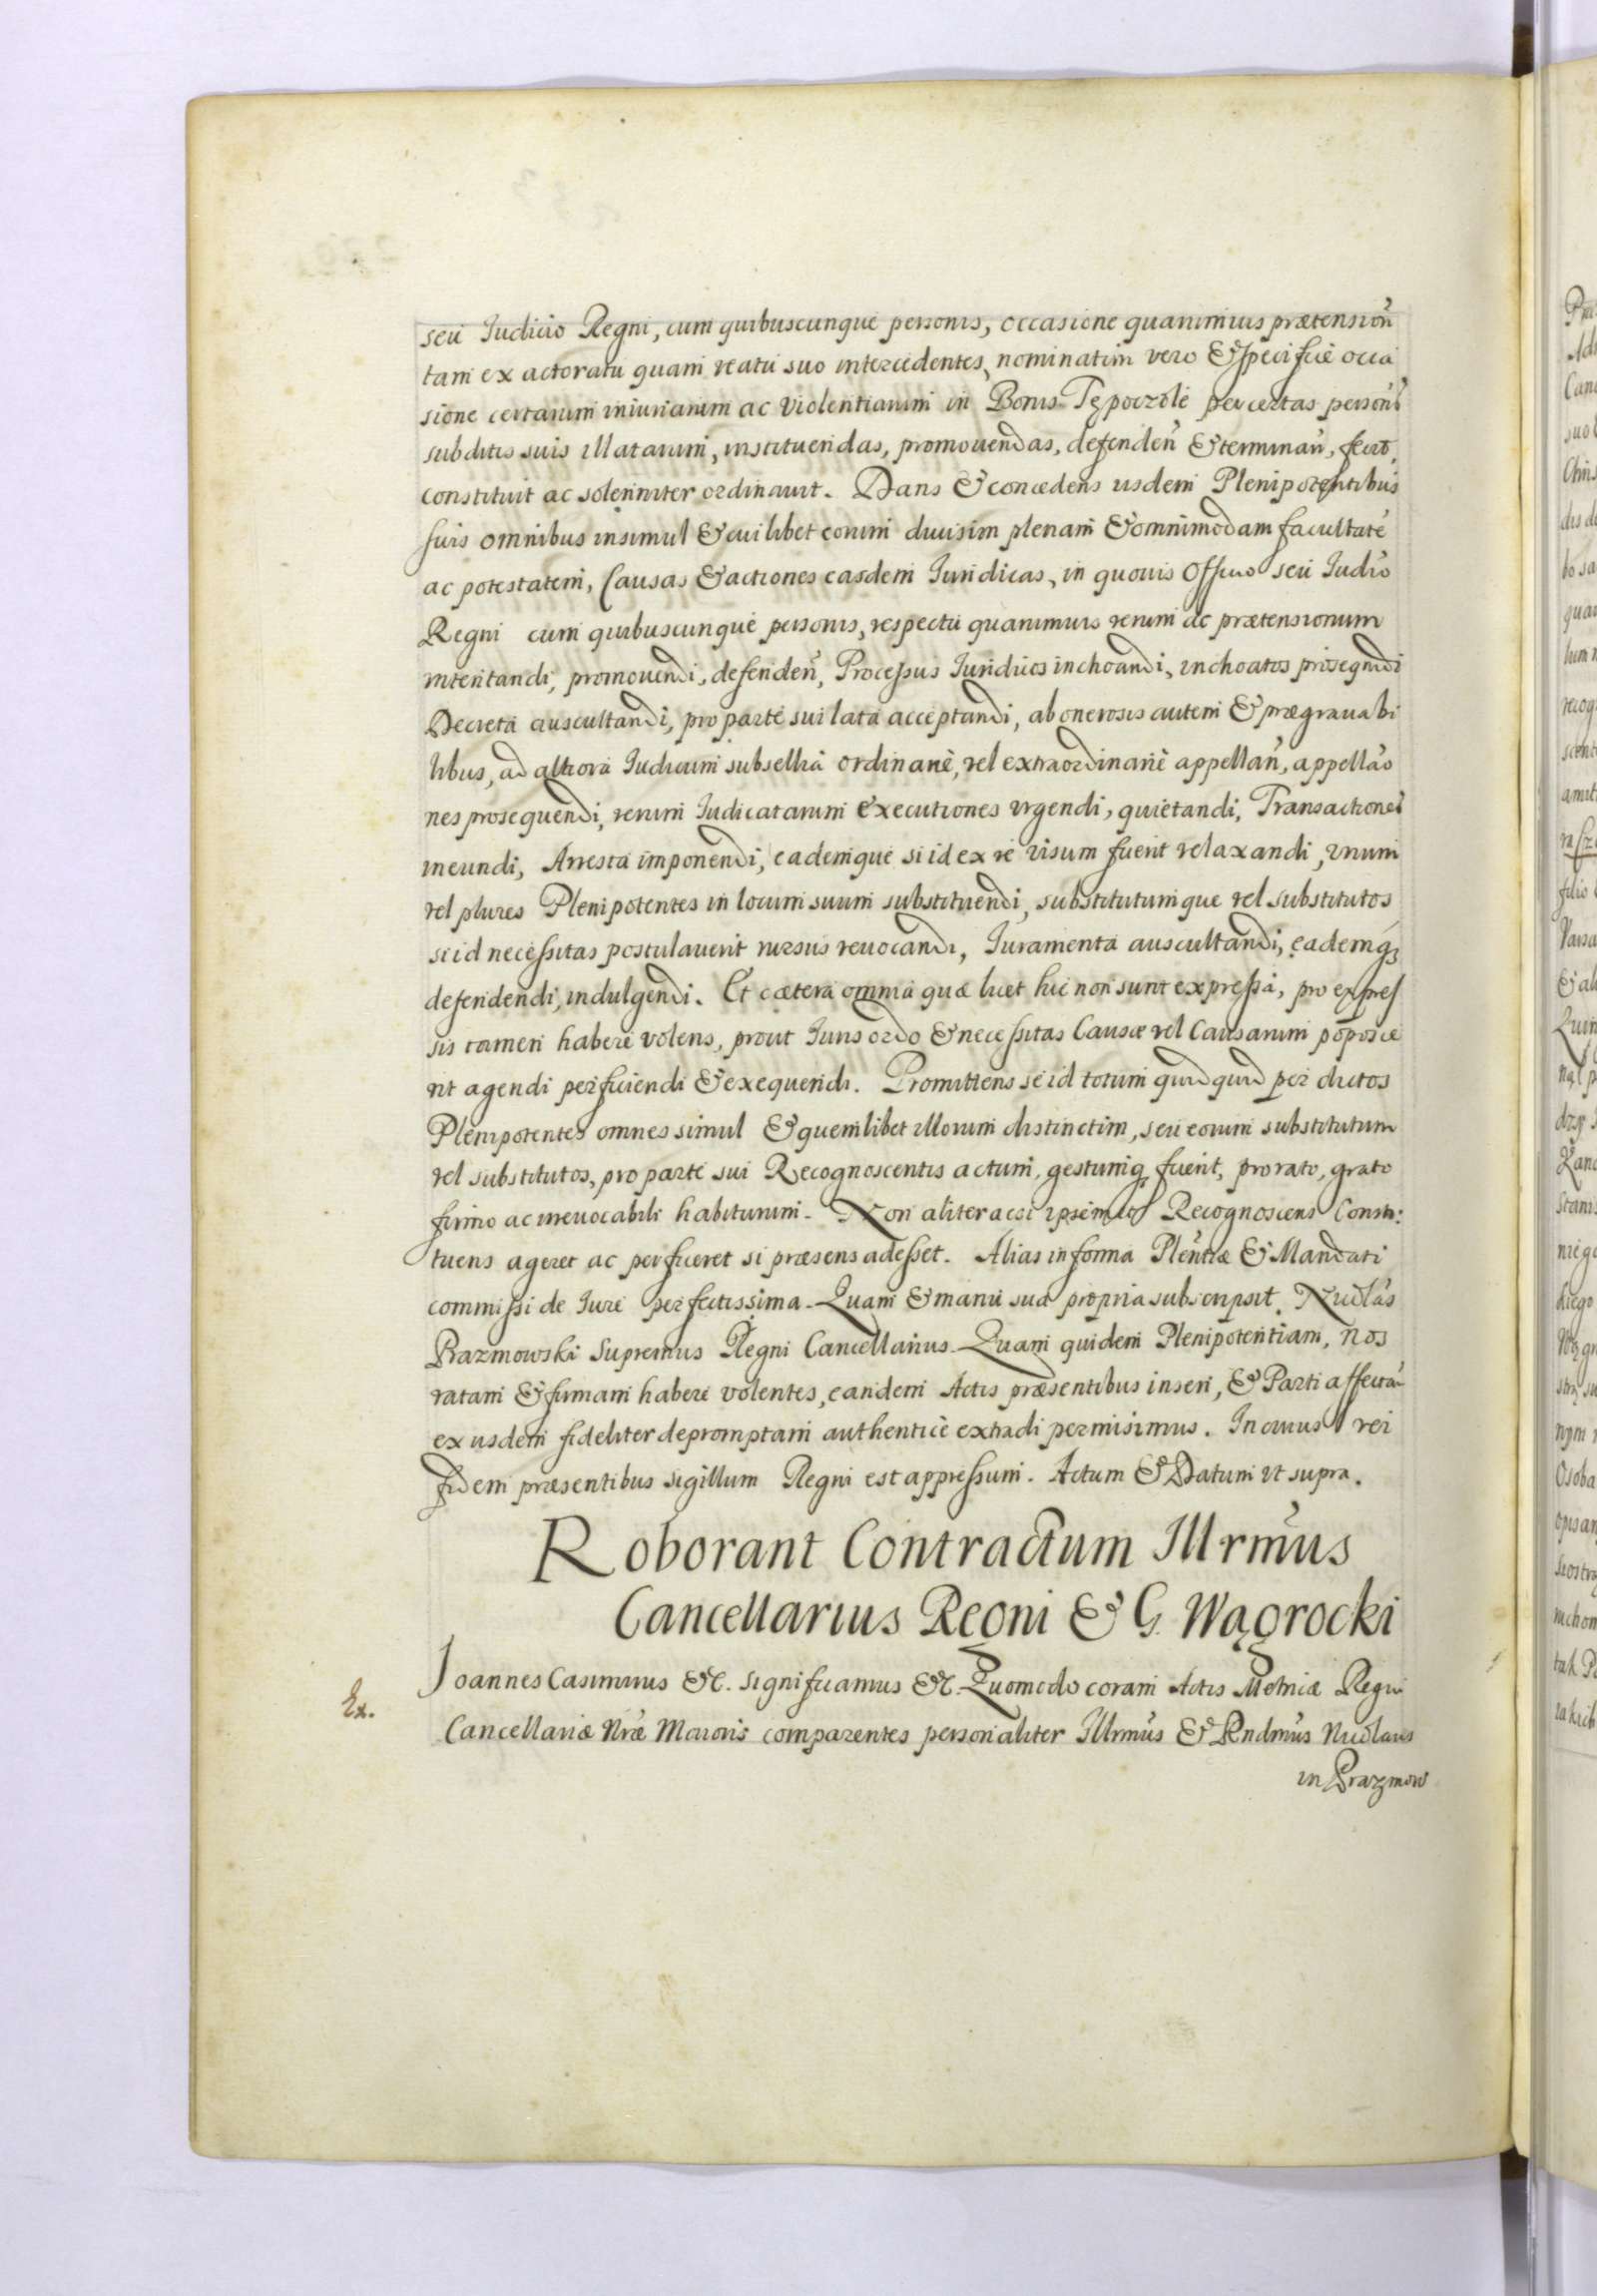 seu Iudicio Regni, cum quibuscunque personis, occasione quarumuis prætensioñ
tam ex actoratu quam reatu suo intercedentes, nominatim vero & specifice occa
sione certarum iniuriarum ac violentiarum in Bonis per certas persons
subditis suis illatarum, instituendas, promouendas, defendeñ & terminañ, fecit,
constituit ac solenniter ordinauit. Dans & concedens iisdem Plenipotentibus
suis omnibus insimul & cuilibet eorum diuisim plenam & omnimodam facultatē
ac potestatem, Causas & actiones easdem Iuridicas, in quouis Officio seu Iudio
Regni cum quibuscunque personis, respectu quarumuis rerum ac prætensionum
intentandi, promouendi, defendeñ, Processus Iuridicos inchoandi, inchoatos prosequendi
Decreta auscultandi, pro parte sui lata acceptandi, ab onerosis autem & prægrauabi
libus, ad altiora Iudiciorum subsellia ordinarie, vel extraordinarie appellañ, appellāo
nes prosequendi, rerum Iudicatarum executiones vrgendi, quietandi, Transactiones
ineundi, Arresta imponendi, eademque si id ex re visum fuerit relaxandi, vnum
vel plures Plenipotentes in locum suum substituendi, substitutumque vel substitutos
si id necessitas postulauerit rursus reuocandi, Iuramenta auscultandi, eademq;
defendendi, indulgendi. Et cætera omnia quæ licet hic non sunt expressa, pro expres
sis tamen habere volens, prout Iuris ordo & necessitas Causæ vel Causarum poposce
rit agendi perficiendi & exequendi. Promittens se id totum quidquid per dictos
Plenipotentes omnes simul & quemlibet illorum distinctim, seu eorum substitutum
vel substitutos, pro parte sui Recognoscentis actum, gestumq; fuerit, pro rato, grato
firmo ac irreuocabili habiturum. Non aliter acsi ipsemet Recognoscens Consti:
tuens ageret ac perficeret si præsens adesset. Alias in forma Pleñtiæ & Mandati
commissi de Iure perfectissima. Quam & manu sua propria subscripsit. Nicolās
Prazmowski Supremus Regni Cancellarius. Quam quidem Plenipotentiam, nos
ratam & firmam habere volentes, eandem Actis præsentibus inseri, & Parti affectāñ
ex iisdem fideliter depromptam authentice extradi permisimus. In cuius rei
fidem præsentibus sigillum Regni est appressum. Actum & Datum vt supra.
Roborant Contractum Illrm̃us
Cancellarius Regni & G. Wągrocki
Ex.
Ioannes Casimirus &c. significamus &c. Quomodo coram Actis Metricæ Regni
Cancellariæ Nr̃æ Maioris comparentes personaliter Illrm̃us & Rndm̃us Nicolaus
in Prazmow